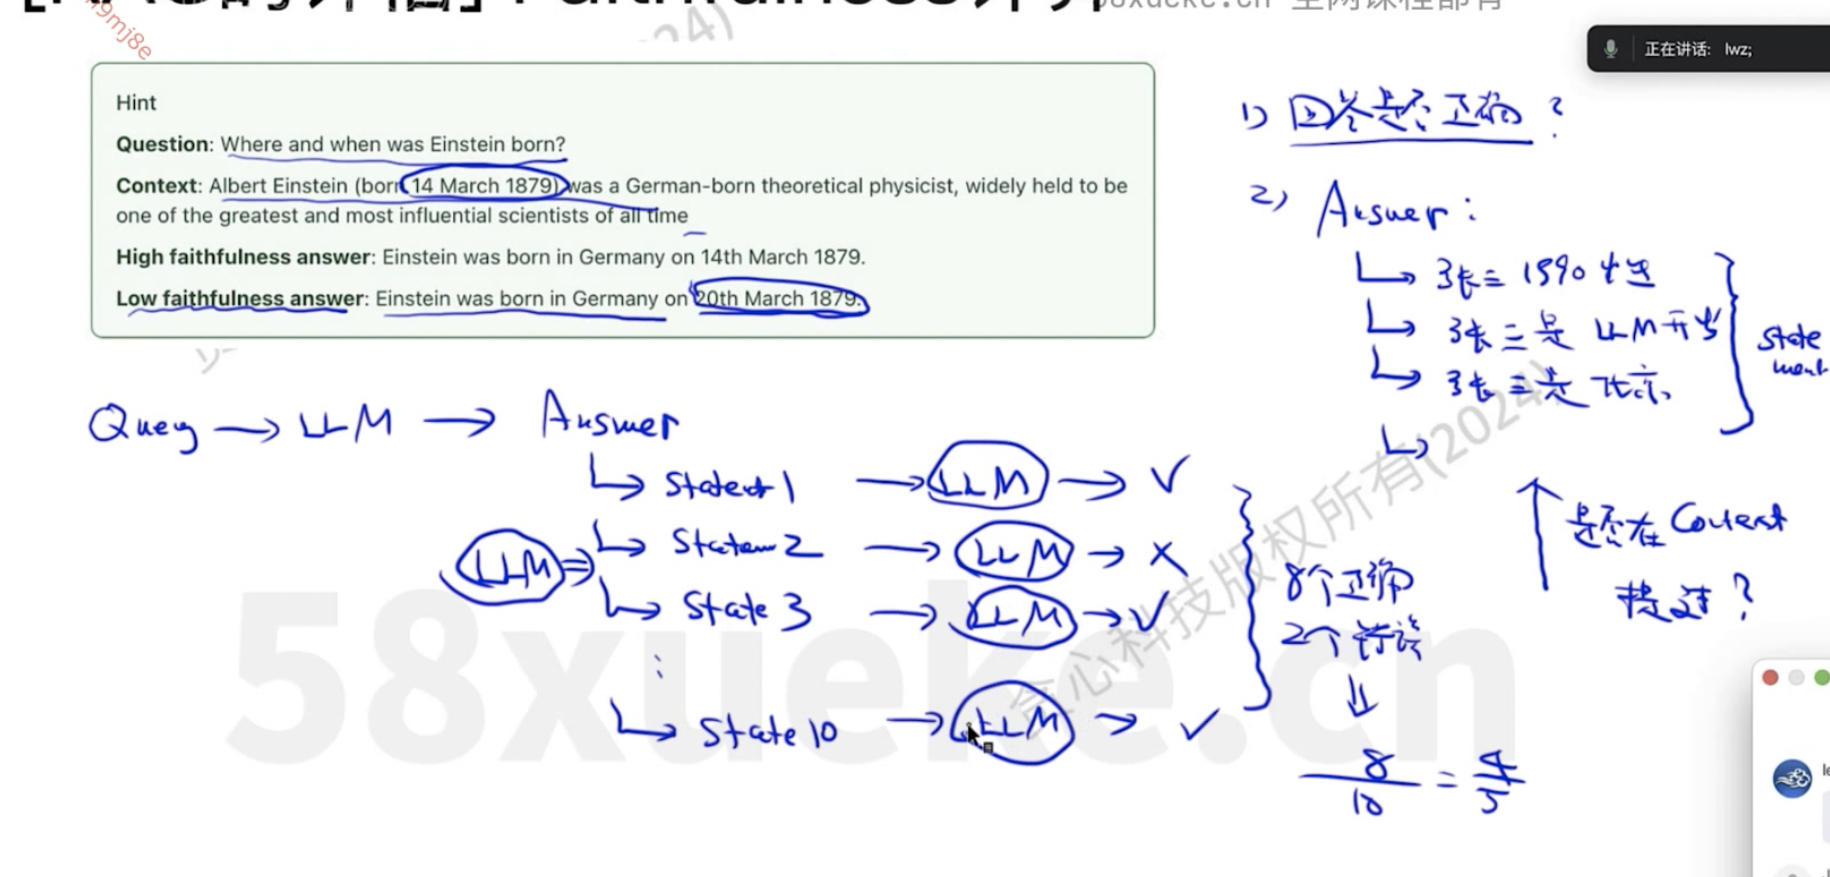 Faithfulness
58xueke.cn 全网课程都有
9mj8e
正在讲话: lwz;
Hint
Question: Where and when was Einstein born?
Context: Albert Einstein (born 14 March 1879) was a German-born theoretical physicist, widely held to be
one of the greatest and most influential scientists of all time
High faithfulness answer: Einstein was born in Germany on 14th March 1879.
Low faithfulness answer: Einstein was born in Germany on 20th March 1879.
1) 回答是否正确?
2) Answer:
张三 1990出生
张三是 LLM 开发
张三是 北京
State
ment
是否在 Context
提过?
Query → LLM → Answer
Statent 1 → LLM → ✓
LLM ⇒ Statem 2 → LLM → ×
State 3 → LLM → ✓
State 10 → LLM → ✓
8个正确
2个错误
8/10 = 4/5
贪心科技版权所有(2024)
58xueke.cn